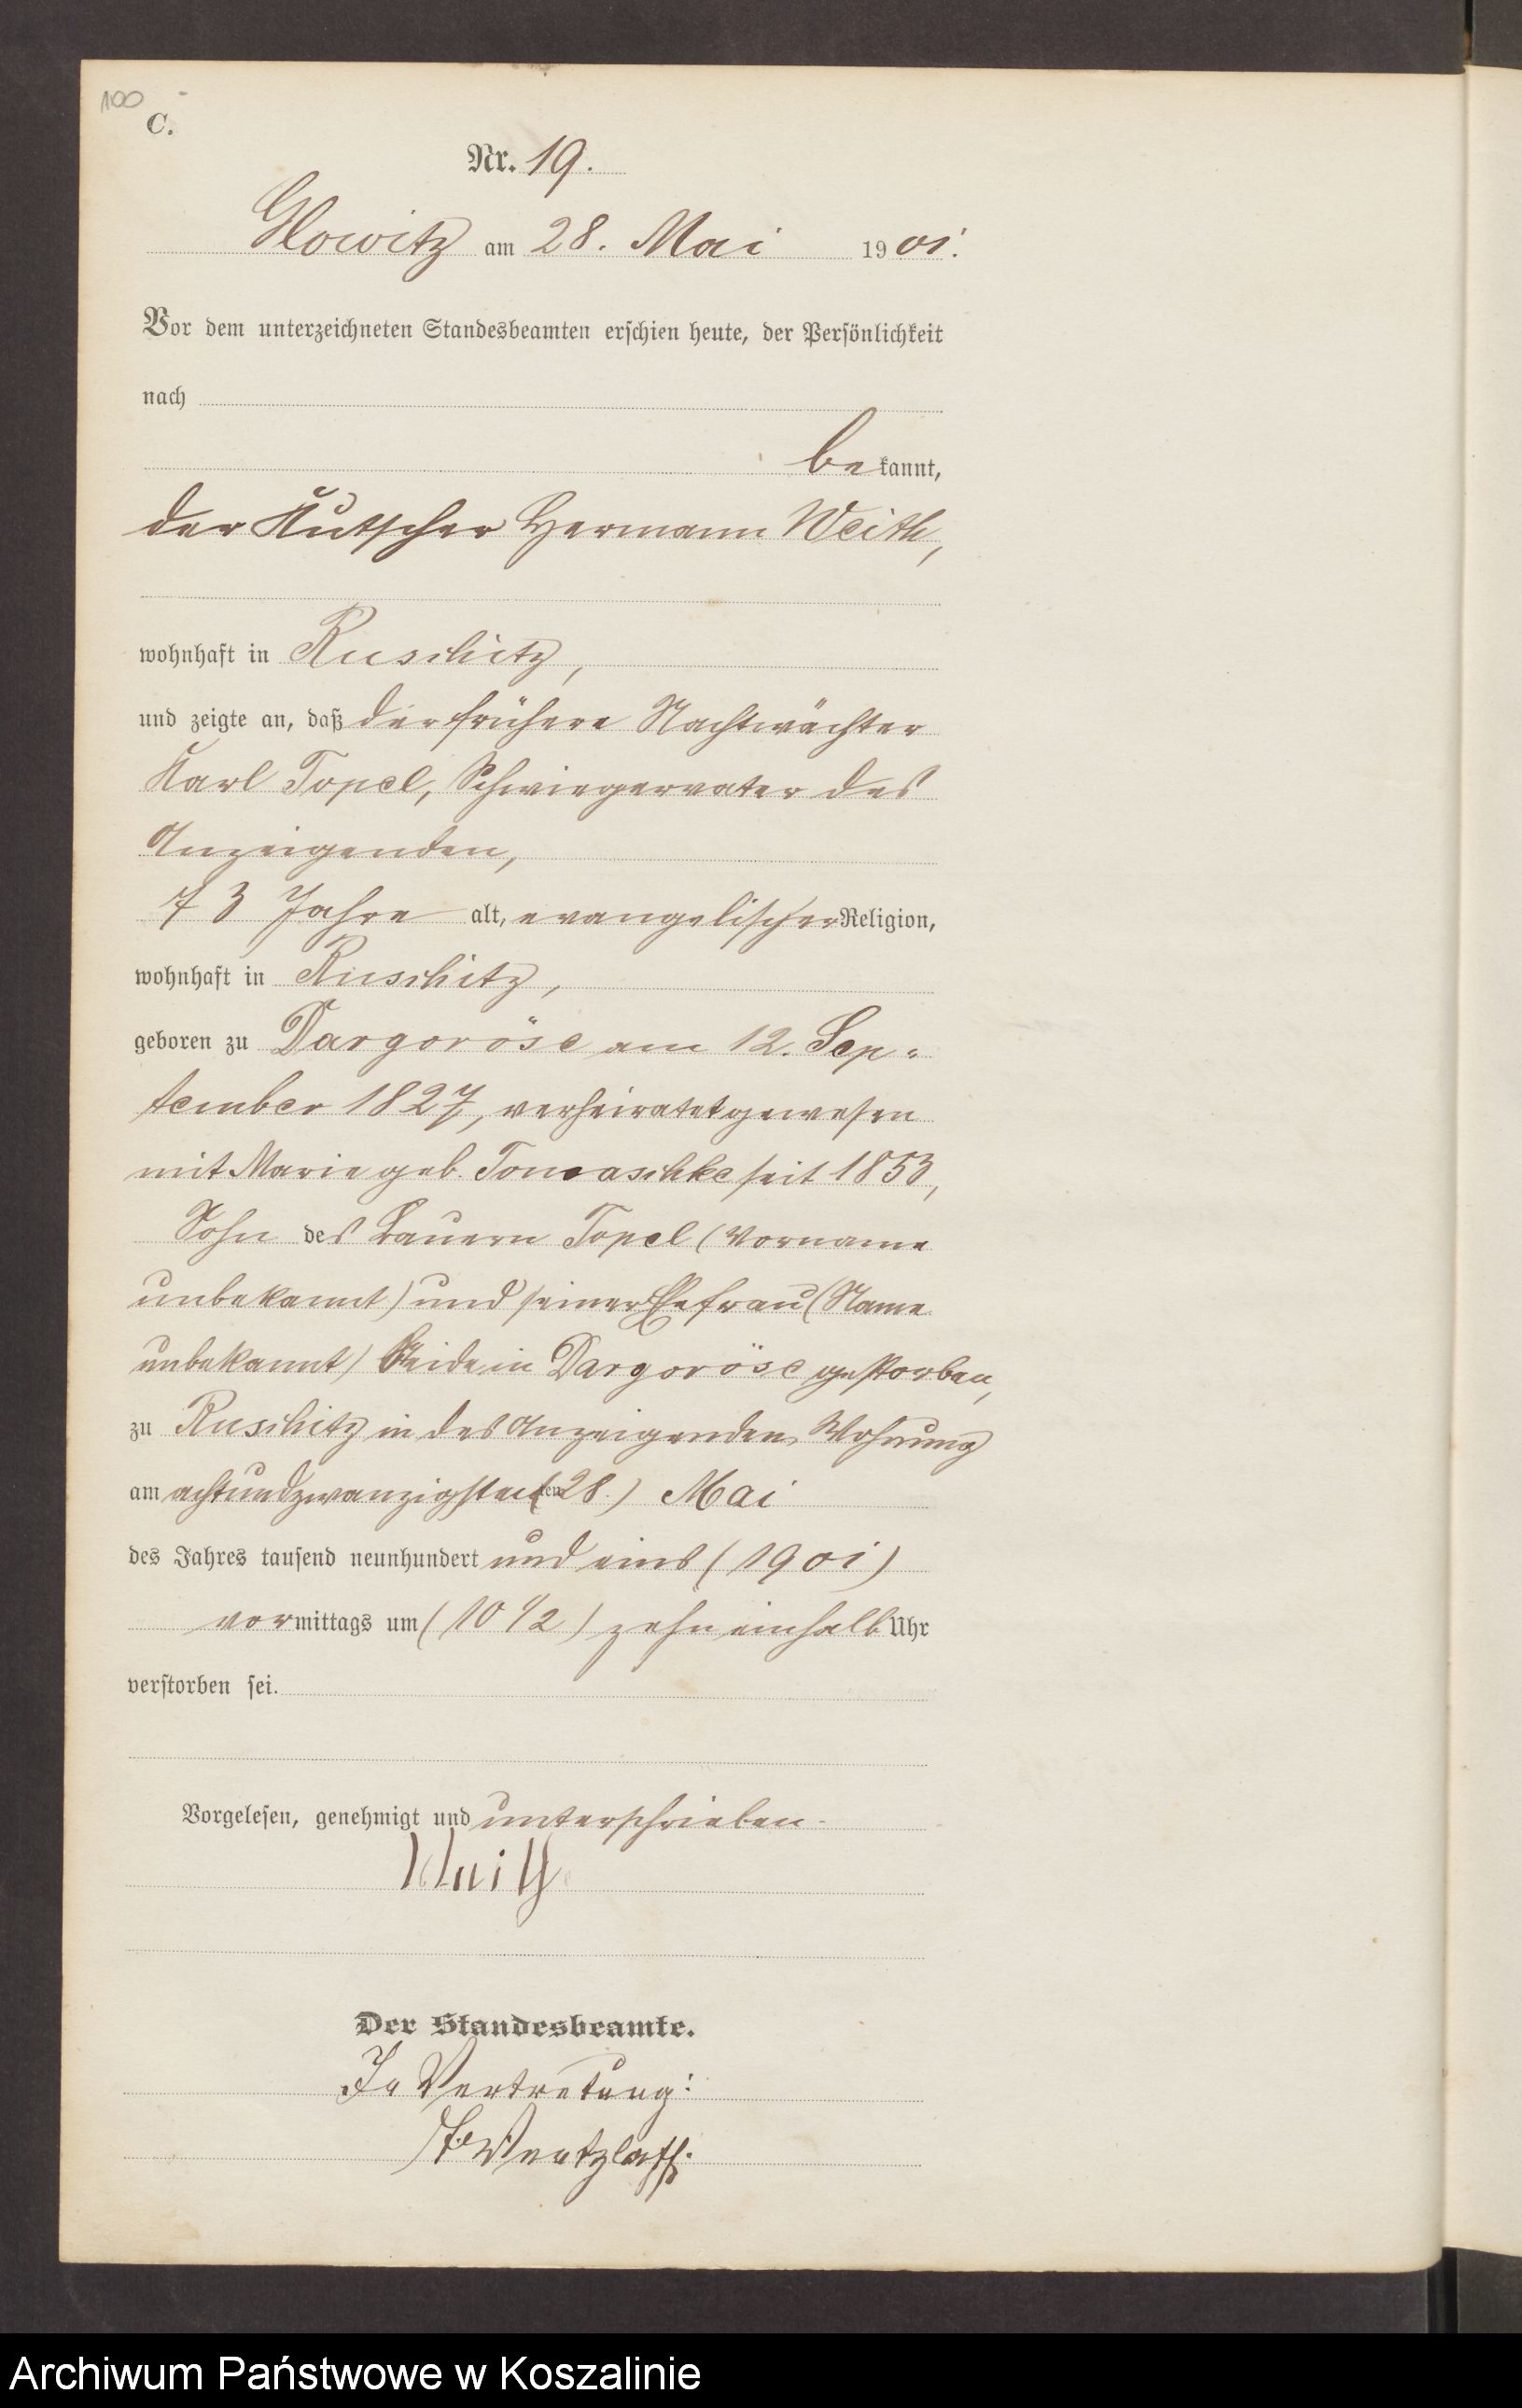 100
C.
Nr. 19.
Glowitz am 28. Mai 1901.
Vor dem unterzeichneten Standesbeamten erschien heute, der Persönlichkeit
nach
bekannt,
der Kutscher Hermann Weith,
wohnhaft in Ruschitz,
und zeigte an, daß der frühere Nachtwächter
Karl Topel, Schwiegervater des
Anzeigenden,
73 Jahre alt, evangelischer Religion,
wohnhaft in Ruschitz,
geboren zu Dargoröse am 12. Sep-
tember 1827, verheiratet gewesen
mit Marie geb. Tomaschke seit 1853,
Sohn des Bauern Topel (Vorname
unbekannt) und seiner Ehefrau (Name
unbekannt) Beide in Dargoröse gestorben,
zu Ruschitz in des Anzeigenden Wohnung
am achtundzwanzigsten (28.) Mai
des Jahres tausend neunhundert und eins (1901)
vormittags um (10 1/2) zehn einhalb Uhr
verstorben sei.
Vorgelesen, genehmigt und unterschrieben.
Weith
Der Standesbeamte.
In Vertretung:
Wentzlaff.
Archiwum Państwowe w Koszalinie